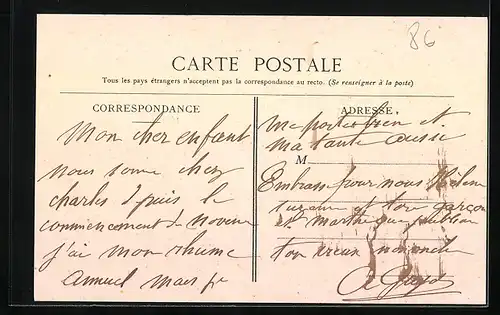 86
CARTE POSTALE
Tous les pays étrangers n'acceptent pas la correspondance au recto. (Se renseigner à la poste)
CORRESPONDANCE
Mon cher enfant
nous some chez
charles dpuis le
commencement de novem
j'ai mon rhume
annuel mais je
ADRESSE
me porte bien et
ma tante aussi
M
Embrass pour nous Hélène
suzanne et ton garçon
et Marthe que
ton vieux